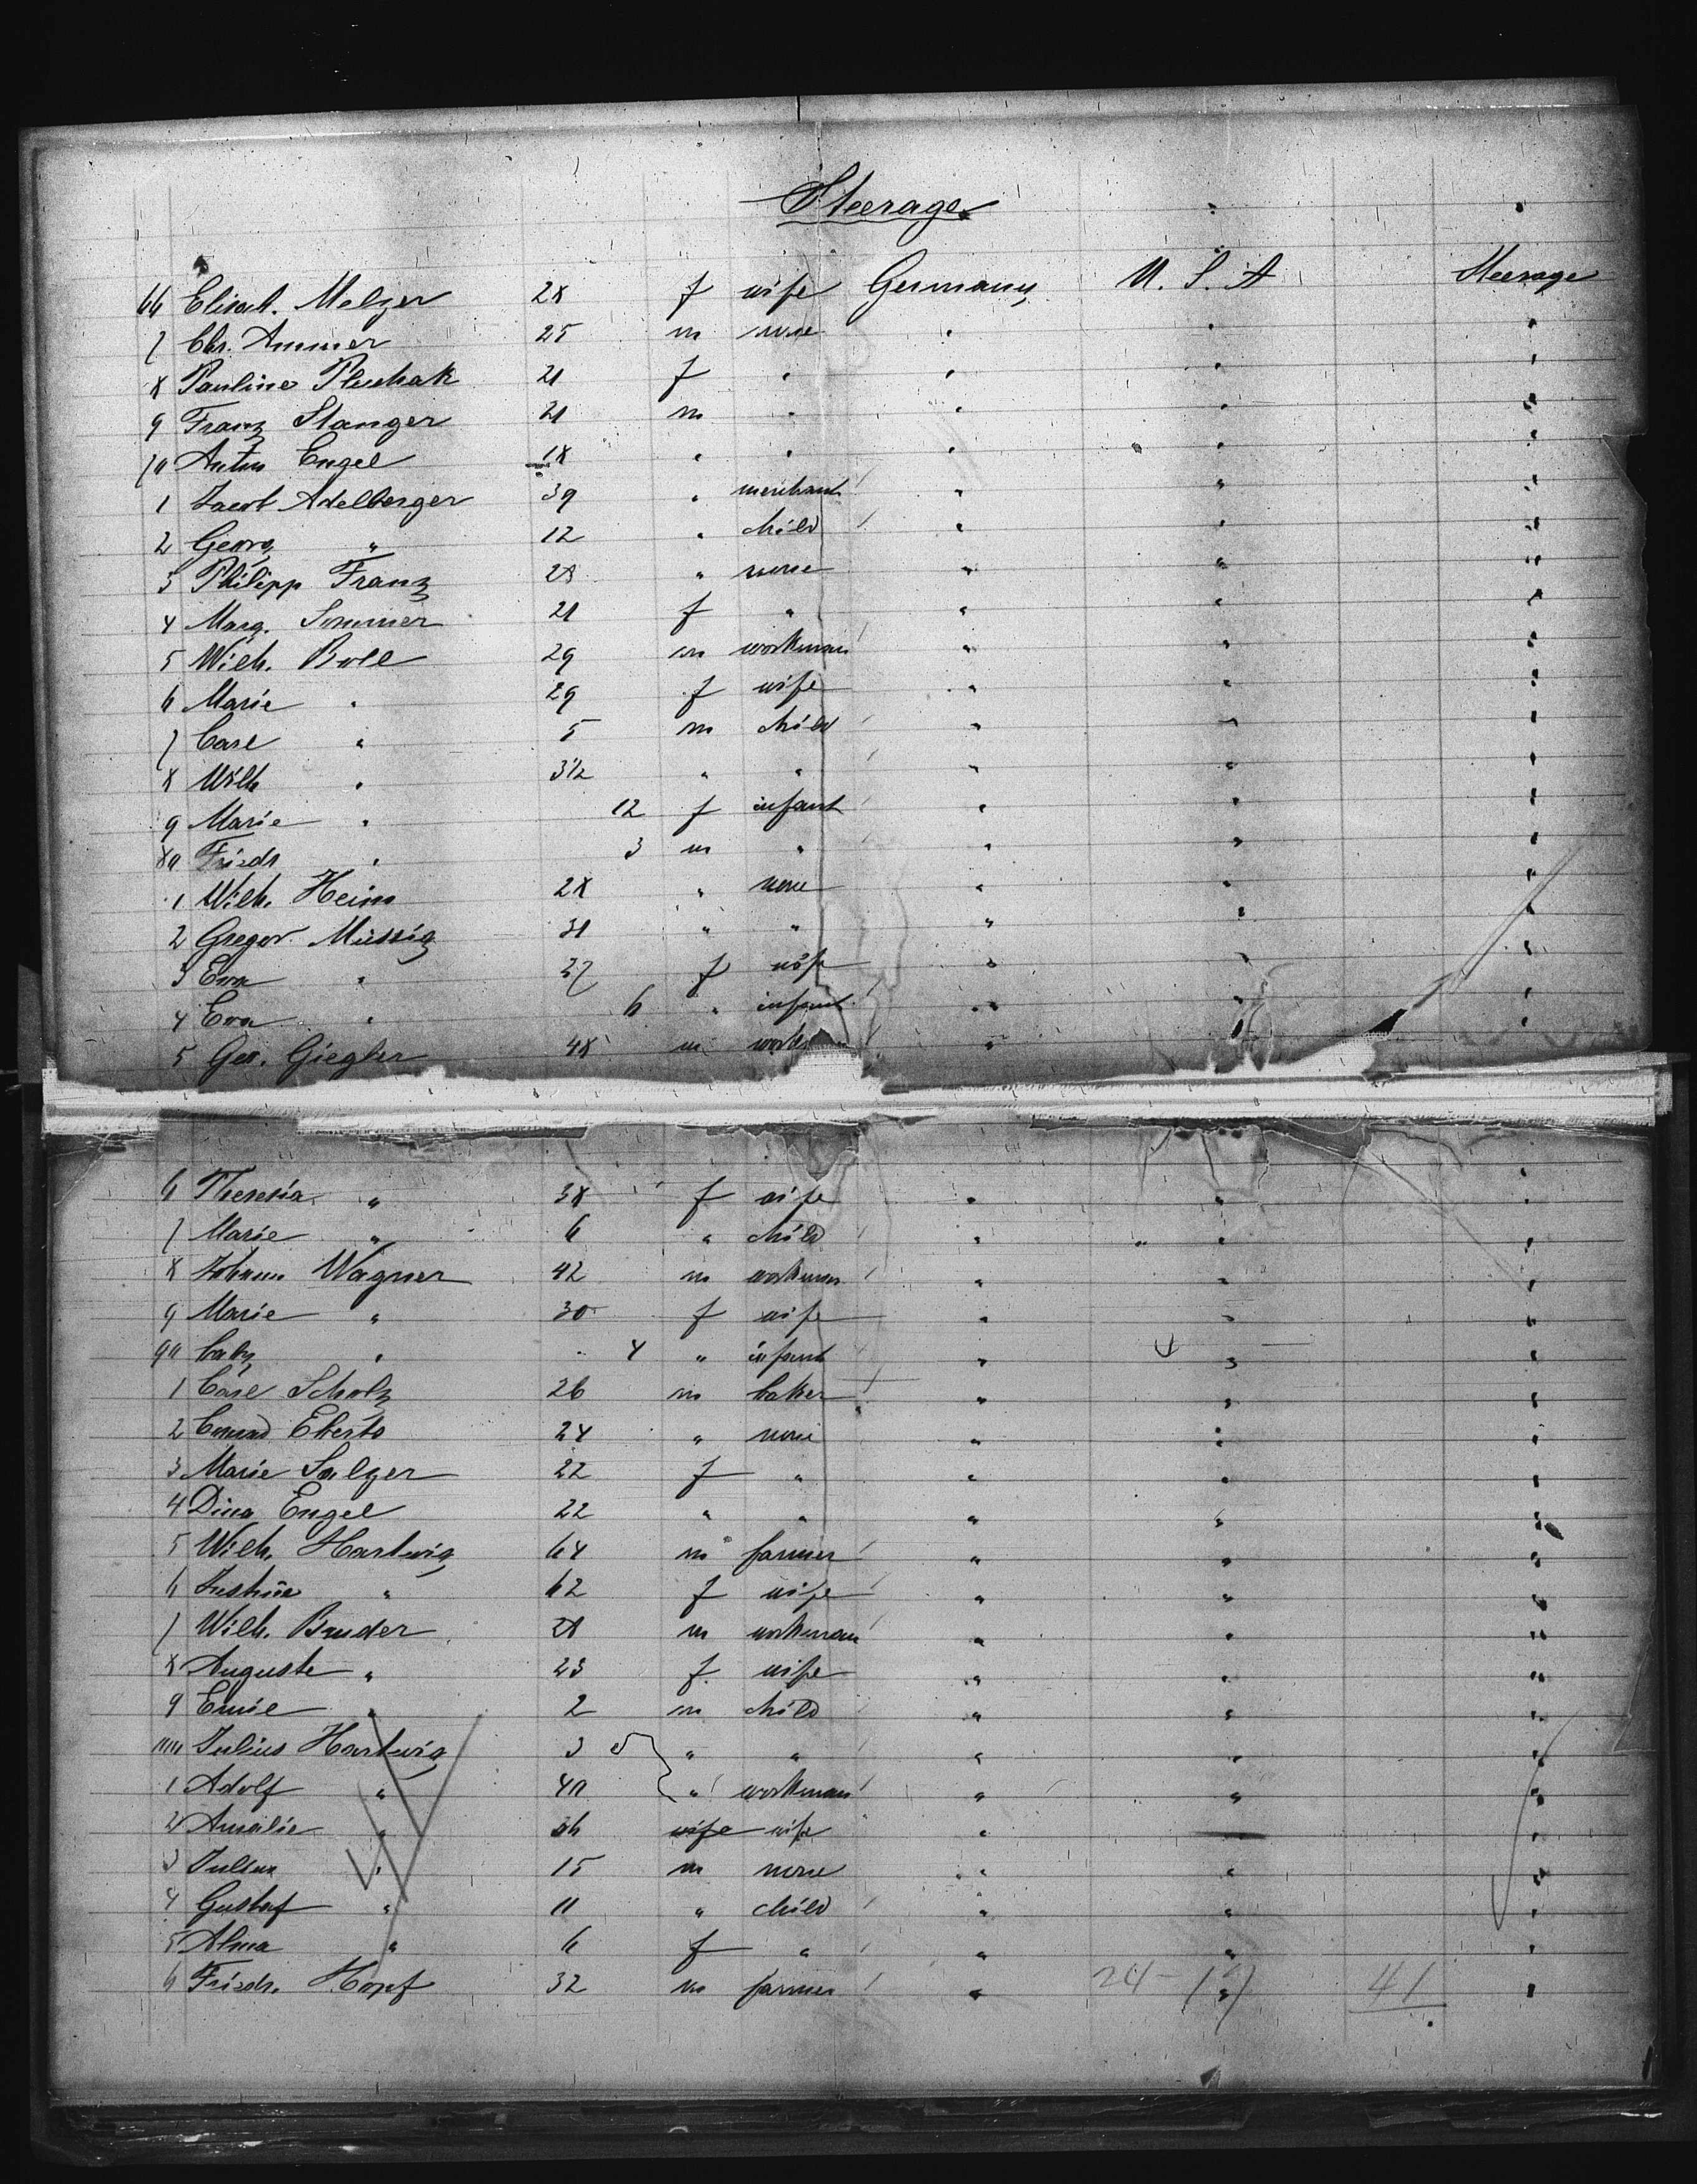 Steerage
66 Elisab. Melzer 28 f wife Germany U. S. A Steerage
7 Chr. Ammer 25 m none " " "
8 Pauline Pluchak 21 f " " " "
9 Franz Stanger 21 m " " " "
70 Anton Engel 18 " " " " "
1 Jacob Adelberger 39 " merchant " " "
2 Georg " 12 " child " " "
3 Philipp Franz 28 " none " " "
4 Marg. Sommer 21 f " " " "
5 Wilh. Boll 29 m workman " " "
6 Marie " 29 f wife " " "
7 Carl " 5 m child " " "
8 Wilh " 3 1/2 " " " " "
9 Marie " 12 f infant " " "
80 Friedr " 3 m " " " "
1 Wilh. Heim 28 " none " " "
2 Gregor Müssig 31 " " " " "
3 Eva " 37 f wife " " "
4 Eva " 6 " infant " " "
5 Geo. Giegler 48 m work "
6 Theresia " 38 f wife " " "
7 Marie " 6 " child " " "
8 Johann Wagner 42 m workman " " "
9 Marie " 30 f wife " " "
90 baby " 4 " infant " " "
1 Carl Scholz 26 m baker " " "
2 Conrad Eberts 24 " none " " "
3 Marie Salzer 22 f " " " "
4 Dina Engel 22 " " " " "
5 Wilh. Hartwig 64 m farmer " " "
6 Justine " 62 f wife " " "
7 Wilh. Bruder 28 m workman " " "
8 Auguste " 23 f wife " " "
9 Emil " 2 m child " " "
Julius Hartwig 3 " " " " "
1 Adolf " 40 " workman " " "
2 Amalie " 36 wife wife " "
3 Julius " 15 m none " " "
4 Gustaf " 11 " child " " "
5 Alma " 6 f " " " "
6 Friedr. Hopf 32 m farmer " 24 - 17 " 41 "